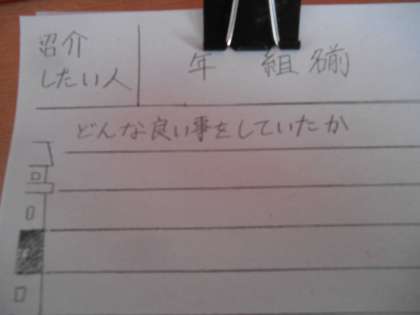 紹介
したい人
年 組 名前
どんな良い事をしていたか